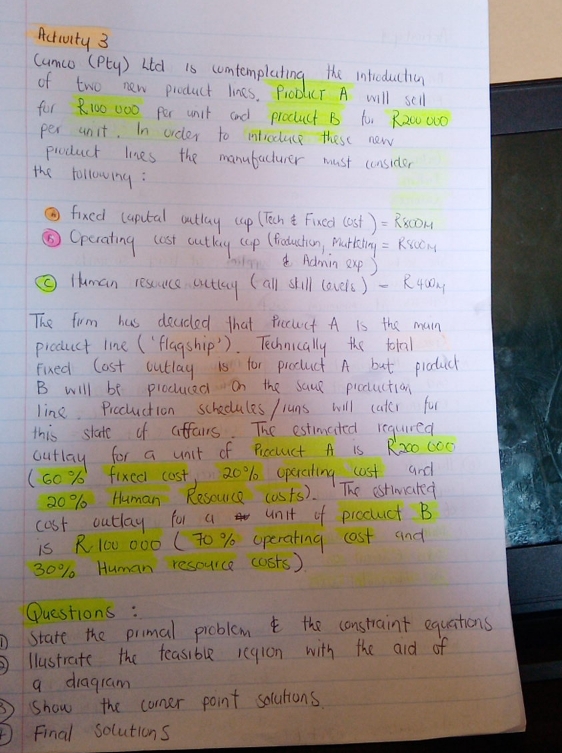 Activity 3
Cumco (Pty) Ltd is comtemplating the introduction
of two new product lines. Product A will sell
for R100 000 per unit and product B for R200 000
per unit. In order to introduce these new
product lines the manufacturer must consider
the following :
a Fixed capital outlay cap (Tech & Fixed cost) = R800M
b Operating cost outlay cap (Production, Marketing = R800M
& Admin exp)
c Human resource outlay (all skill levels) = R400M
The firm has decided that Product A is the main
product line ('flagship'). Technically the total
fixed cost outlay is for product A but product
B will be produced on the same production
line. Production schedules/runs will cater for
this state of affairs. The estimated required
outlay for a unit of Product A is R200 000
(60% fixed cost, 20% operating cost and
20% Human Resource costs). The estimated
cost outlay for a unit of product B
is R100 000 (70% operating cost and
30% Human resource costs)
Questions :
1 State the primal problem & the constraint equations
2 Illustrate the feasible region with the aid of
a diagram
3 Show the corner point solutions.
4 Final solutions